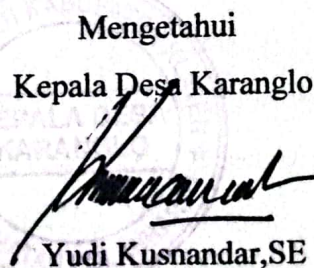 Mengetahui
Kepala Desa Karanglo
Yudi Kusnandar,SE